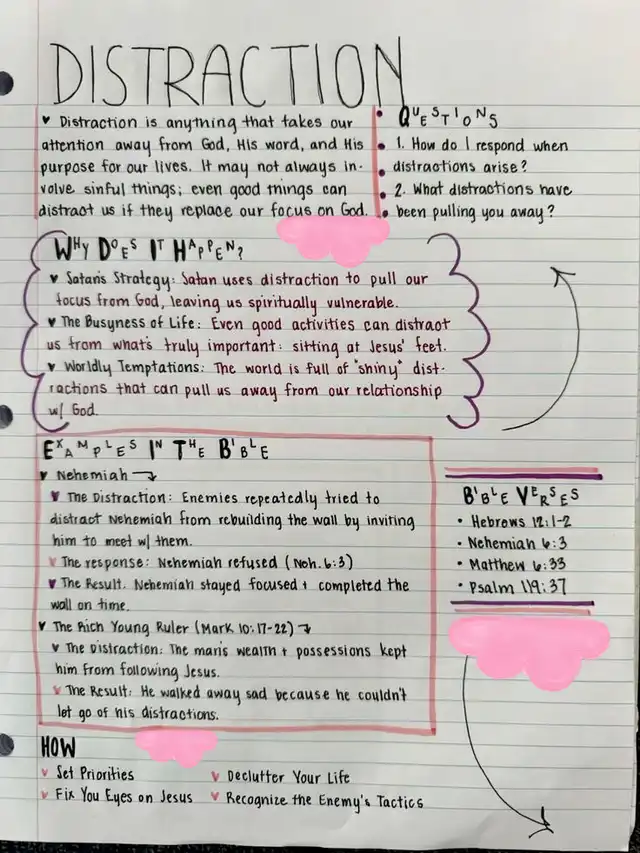 DISTRACTION
♥ Distraction is anything that takes our
attention away from God, His word, and His
purpose for our lives. It may not always in-
volve sinful things; even good things can
distract us if they replace our focus on God.
QUESTIONS
1. How do I respond when
distractions arise?
2. What distractions have
been pulling you away?
WHY DOES IT HAPPEN?
♥ Satan's Strategy: Satan uses distraction to pull our
focus from God, leaving us spiritually vulnerable.
♥ The Busyness of Life: Even good activities can distract
us from what's truly important: sitting at Jesus' feet.
♥ Worldly Temptations: The world is full of "shiny" dist-
ractions that can pull us away from our relationship
w/ God.
EXAMPLES IN THE BIBLE
♥ Nehemiah →
♥ The Distraction: Enemies repeatedly tried to
distract Nehemiah from rebuilding the wall by inviting
him to meet w/ them.
♥ The response: Nehemiah refused (Neh. 6:3)
♥ The Result. Nehemiah stayed focused + completed the
wall on time.
♥ The Rich Young Ruler (Mark 10:17-22) →
♥ The Distraction: The man's wealth + possessions kept
him from following Jesus.
♥ The Result: He walked away sad because he couldn't
let go of his distractions.
BIBLE VERSES
• Hebrews 12:1-2
• Nehemiah 6:3
• Matthew 6:33
• Psalm 119:37
HOW
♥ Set Priorities
♥ Declutter Your Life
♥ Fix You Eyes on Jesus
♥ Recognize the Enemy's Tactics